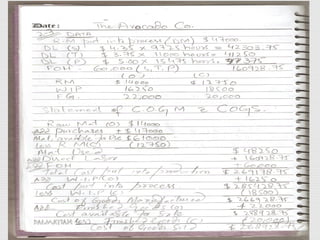 Date:
The Avocado Co.
DATA
R.M put into process (DM) $ 47000
DL (W) $ 4.35 × 9725 hours = 42303.75
DL (T) $ 3.75 × 11000 hours = 41250
DL (P) $ 5.00 × 15475 hrs. = 77375
FOH = 60,000 (S,T,P) 160928.75
(O) (C)
RM $ 14000 $ 12750
WIP 16250 18500
FG. 22,000 20,000
Statement of C.O.G.M & COGS.
Raw Mat (O) $ 14000
Add Purchases $ 47000
Mat. available to be $ 61000
Less R.M(C) (12750)
Mat. Used $ 48250
Add Direct Labor 160928.75
Add FOH + 60000
Total Cost put into production $ 269178.75
Add W.I.P(O) + 16250
Cost put into process $ 285428.75
Less W.I.P(C) (18500)
Cost of Goods Manufactured $ 266928.75
Add Finished Goods (O) + 22000
Cost available for Sale $ 288928.75
Less Finished Goods (C) (20,000)
Cost of Goods Sold $ 268928.75